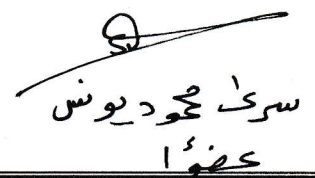 سرى محمود يونس
عضوًا